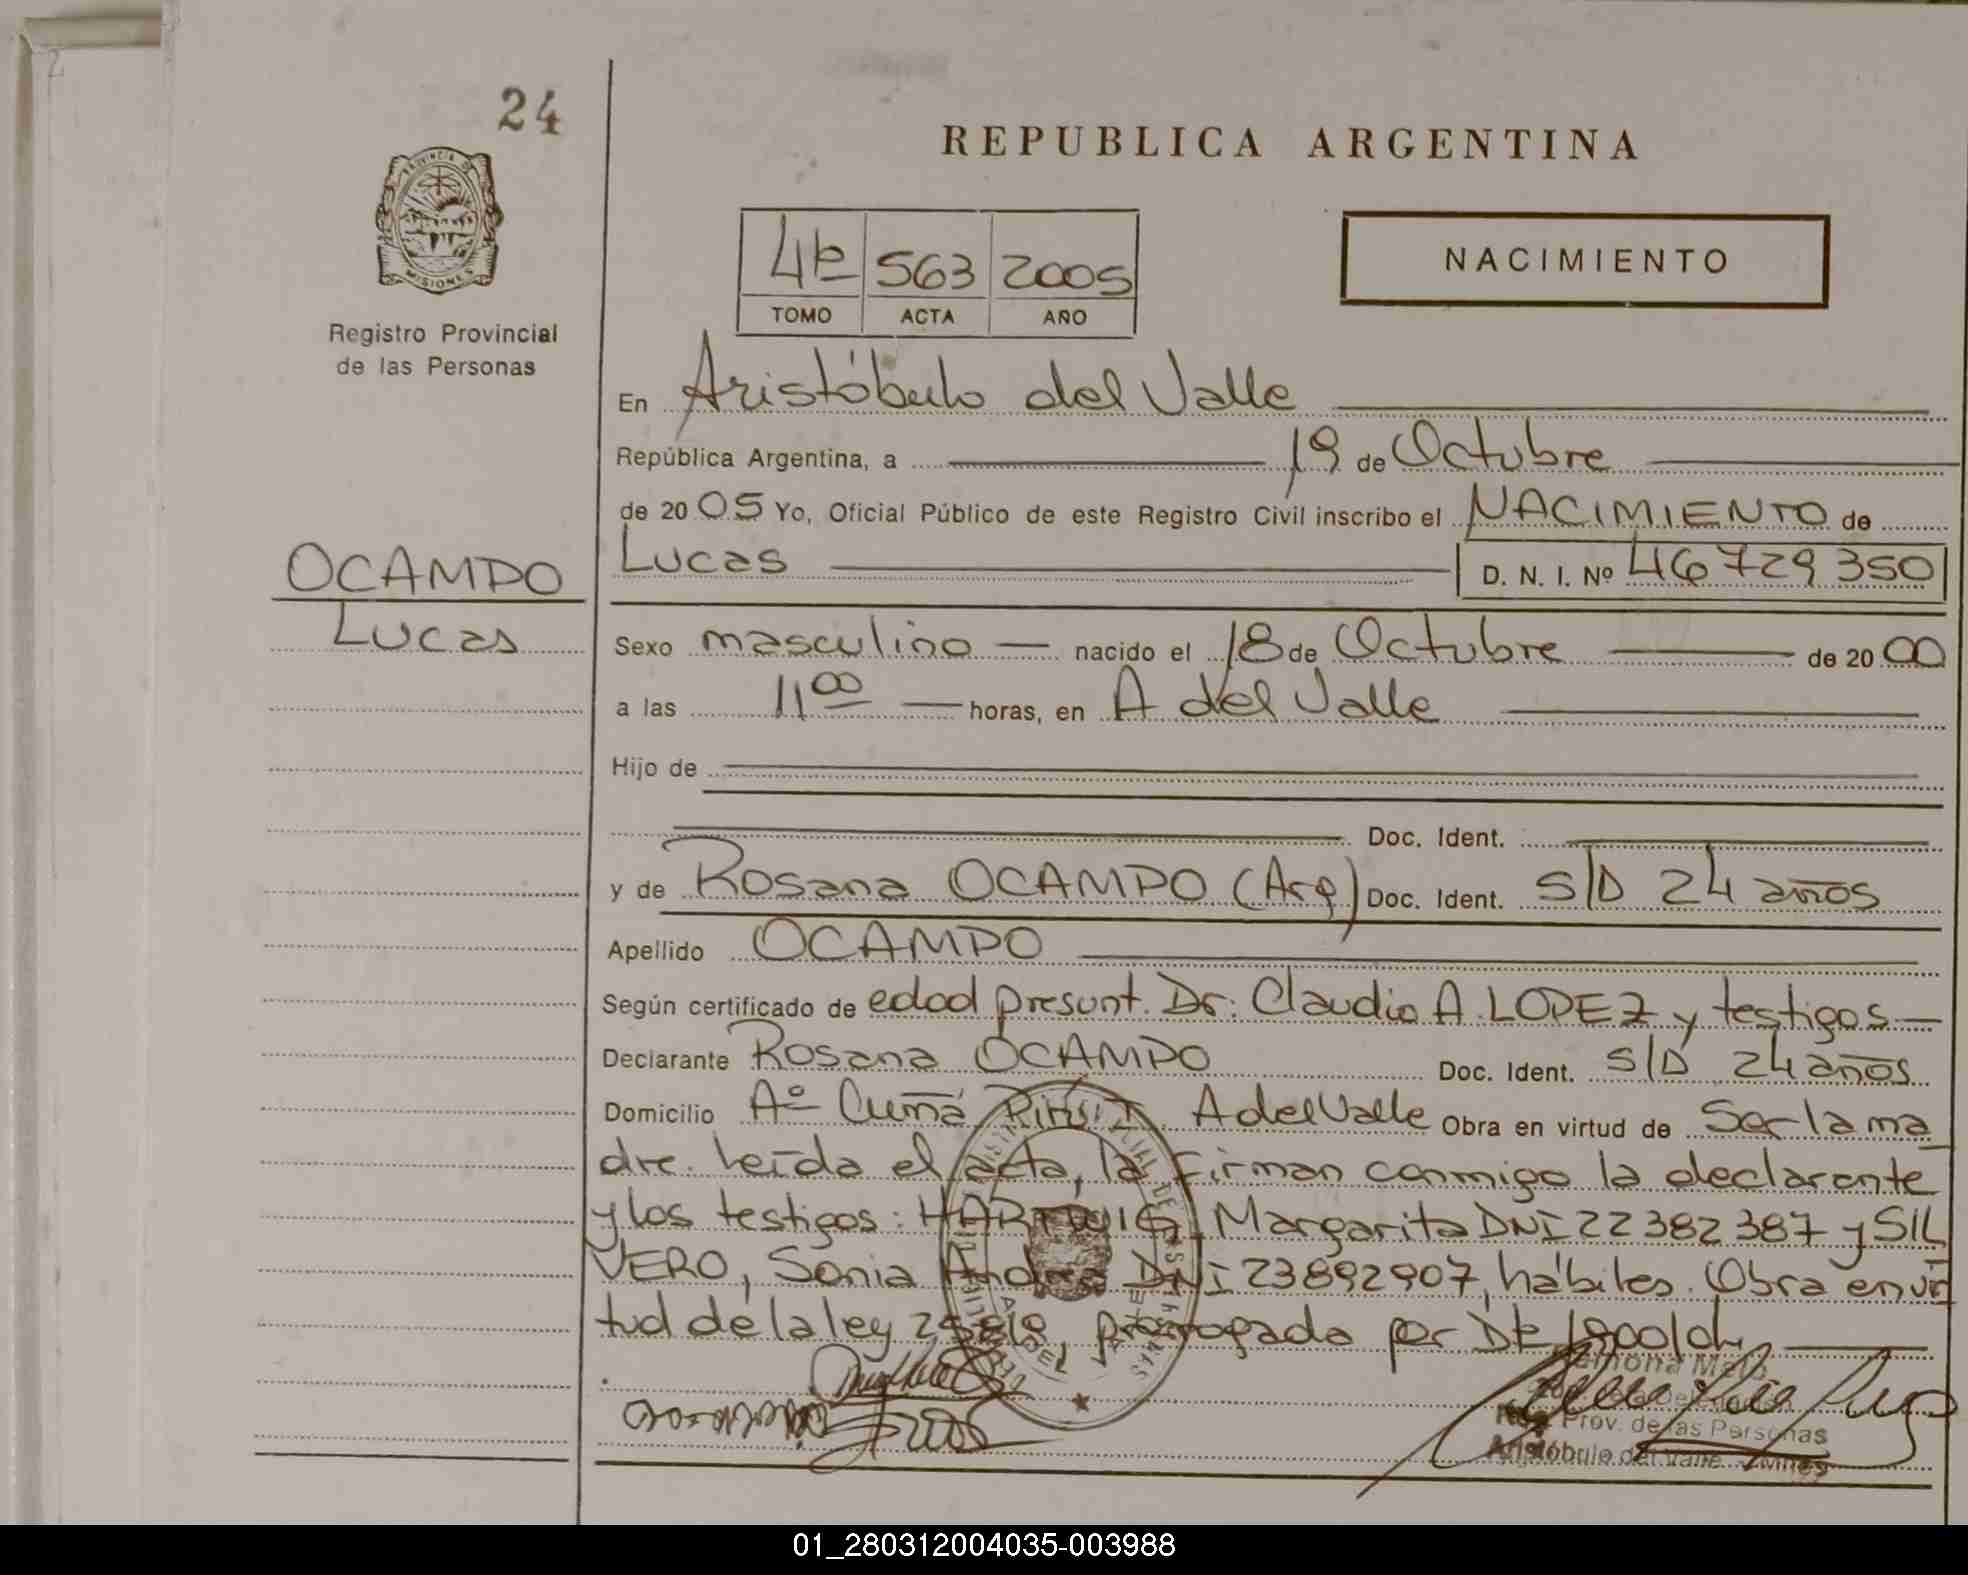 24
REPUBLICA ARGENTINA
PROVINCIA DE
MISIONES
Registro Provincial
de las Personas
4º 563 2005
TOMO ACTA AÑO
NACIMIENTO
En Aristóbulo del Valle
República Argentina, a 19 de Octubre
de 20 05 Yo, Oficial Público de este Registro Civil inscribo el NACIMIENTO de
OCAMPO
Lucas
Lucas D. N. I. Nº 46729350
Sexo masculino nacido el 18 de Octubre de 20 00
a las 11 00 horas, en A del Valle
Hijo de
Doc. Ident.
y de Rosana OCAMPO (Arg) Doc. Ident. S/D 24 años
Apellido OCAMPO
Según certificado de edad presunt. Dr. Claudio A. LOPEZ y testigos
Declarante Rosana OCAMPO Doc. Ident. S/D 24 años
Domicilio Aº Cuña Pirú I A del Valle Obra en virtud de Ser la ma
dre. Leída el acta, la firman conmigo la declarante
y los testigos: HARTWIG, Margarita DNI 22382387 y SIL
VERO, Sonia Andrea DNI 23892907, hábiles. Obra en vir
tud de la ley 25819, prorrogada por
Ramona
Reg. Prov. de las Personas
Aristóbulo del Valle - Mnes
01_280312004035-003988